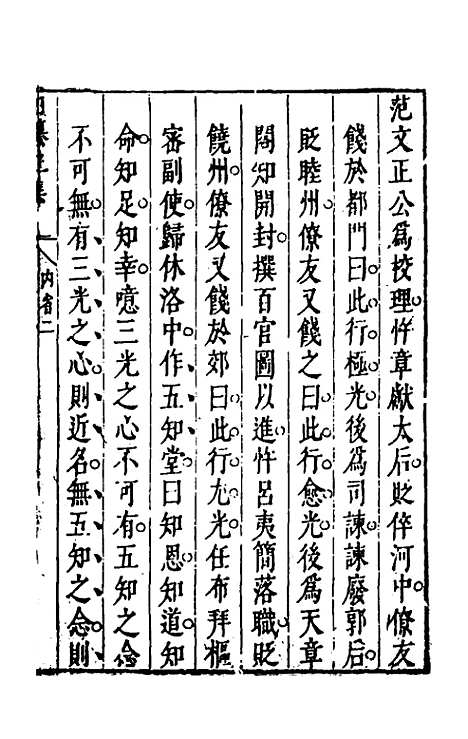 范文正公為校理忤章獻太后貶倅河中僚友
餞於都門曰此行極光後為司諫諫廢郭后
貶睦州僚友又餞之曰此行愈光後為天章
閣知開封撰百官圖以進忤呂夷簡落職貶
饒州僚友又餞於郊曰此行尤光任布拜樞
審副使歸休洛中作五知堂曰知恩知道知
命知足知幸噫三光之心不可有五知之念
不可無有三光之心則近名無五知之念則
內省二